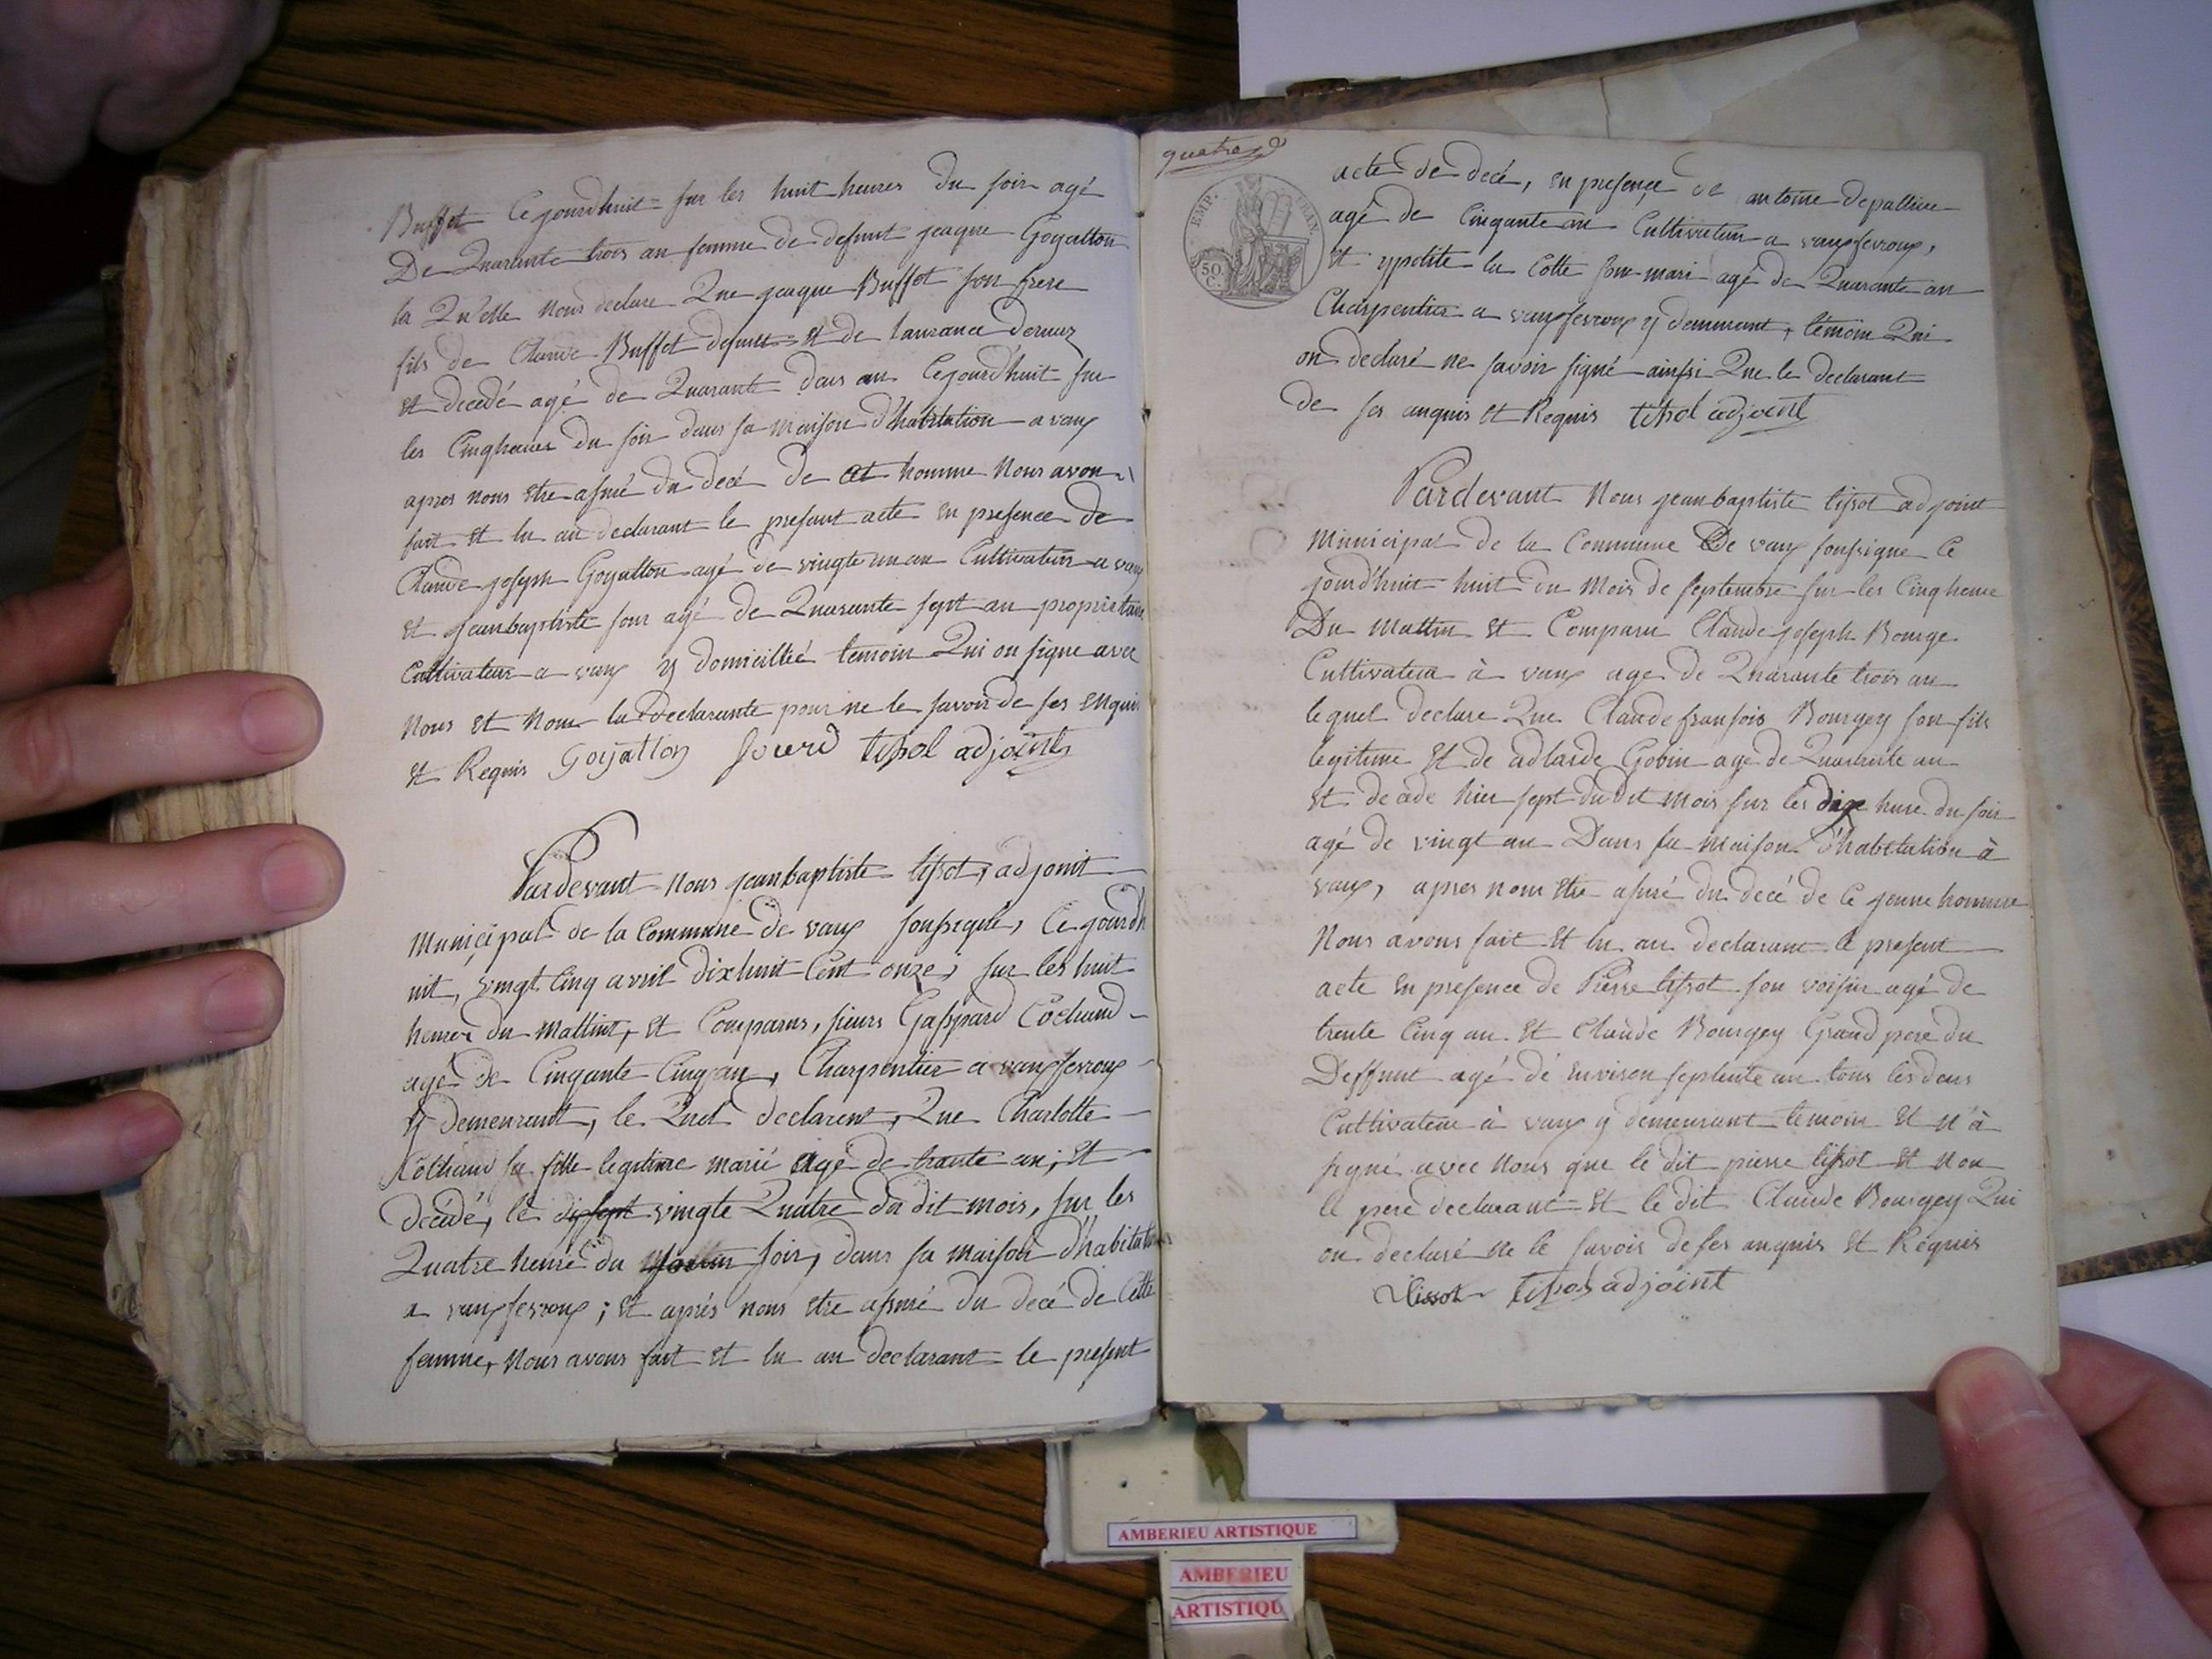 Buffet Cejourdhuit sur les huit heures du soir agé
De Quarante trois an femme de defunt jeaque Goyatton
la Qu'elle nous declare Que jeaque Buffet son frere
fils de Claude Buffet defunt et de laurance
et decedé agé de Quarant deus an Cejourd'huit sur
les Cinq heures du soir dans sa maison d'habitation a vaux
apres nous etre assuré du decé de cet homme Nous avon
fait et lu au declarant le present acte en presence de
Claude joseph Goyatton agé de vingte un an Cultivateur a vaux
et jeanbaptiste sour agé de Quarante sept an proprietaire
Cultivateur a vaux y domicillié temoin Qui on signe avec
Nous et Non la declarante pour ne le savoir de ses enquis
et Requis Goyatton sourd tissot adjoint
Pardevant Nous jeanbaptiste tissot, adjonit
Municipal de la Commune de vaux soussigné, Ce jourdh
uit, vingt Cinq avril dixhuit Cent onze, sur les huit
heures du mattint, et Comparus, sieurs Gasspard Cochand
agé de Cinquante Cinq an, Charpentier a vauxfevroux
y demeurant, le Quel declarent, Que Charlotte
Cochand sa fille legitime marié agé de trante an; et
decédé, le disept vingte Quatre du dit mois, sur les
Quatre heure du Mattin soir, dans sa maison d'habitation
a vauxfevroux; et aprés nous etre assuré du decé de Cette
femme, Nous avons fait et lu au declarant le present
quatre
EMP. FRAN.
50 C.
acte de decé, en presence de antoine depallier
agé de Cinquante an Cultivateur a vauxfevroux,
et ypolite la Cotte son mari agé de Quarante an
Charpentier a vauxfevroux y demurant, temoin Qui
on declaré ne savoir signé ainssi Que le declarant
de ses anquis et Requis tissot adjoint
Pardevant Nous jeanbaptiste tissot adjoint
Municipal de la Commune De vaux soussigne Ce
jourd'huit huit du Mois de septembre sur les Cinq heure
Du Mattin et Comparu Claude joseph Bourge
Cultivateur à vaux age de Quarante trois an
lequel declare Que Claude fransois Bourgey son fils
legitime et de adlaide Gobin age de Quarante an
et decade hier sept dudit mois sur les dix hure du soir
agé de vingt an Dans sa maison d'habitation à
vaux, apres nous etre assuré du decé de Ce jeune homme
Nous avons fait et lu au declarant le present
acte en presence de Pierre tissot son voisin agé de
trente Cinq an et Claude Bourgey Grand pere du
Deffunt agé de environ septente an tous les deus
Cultivateur à vaux y demeurant temoin et n'à
signé avec Nous que le dit pierre tissot et Non
le pere declarant et le dit Claude Bourgey Qui
on declaré ne le savoir de ses anquis et Requis
tissot tissot adjoint
AMBERIEU ARTISTIQUE
AMBERIEU
ARTISTIQU